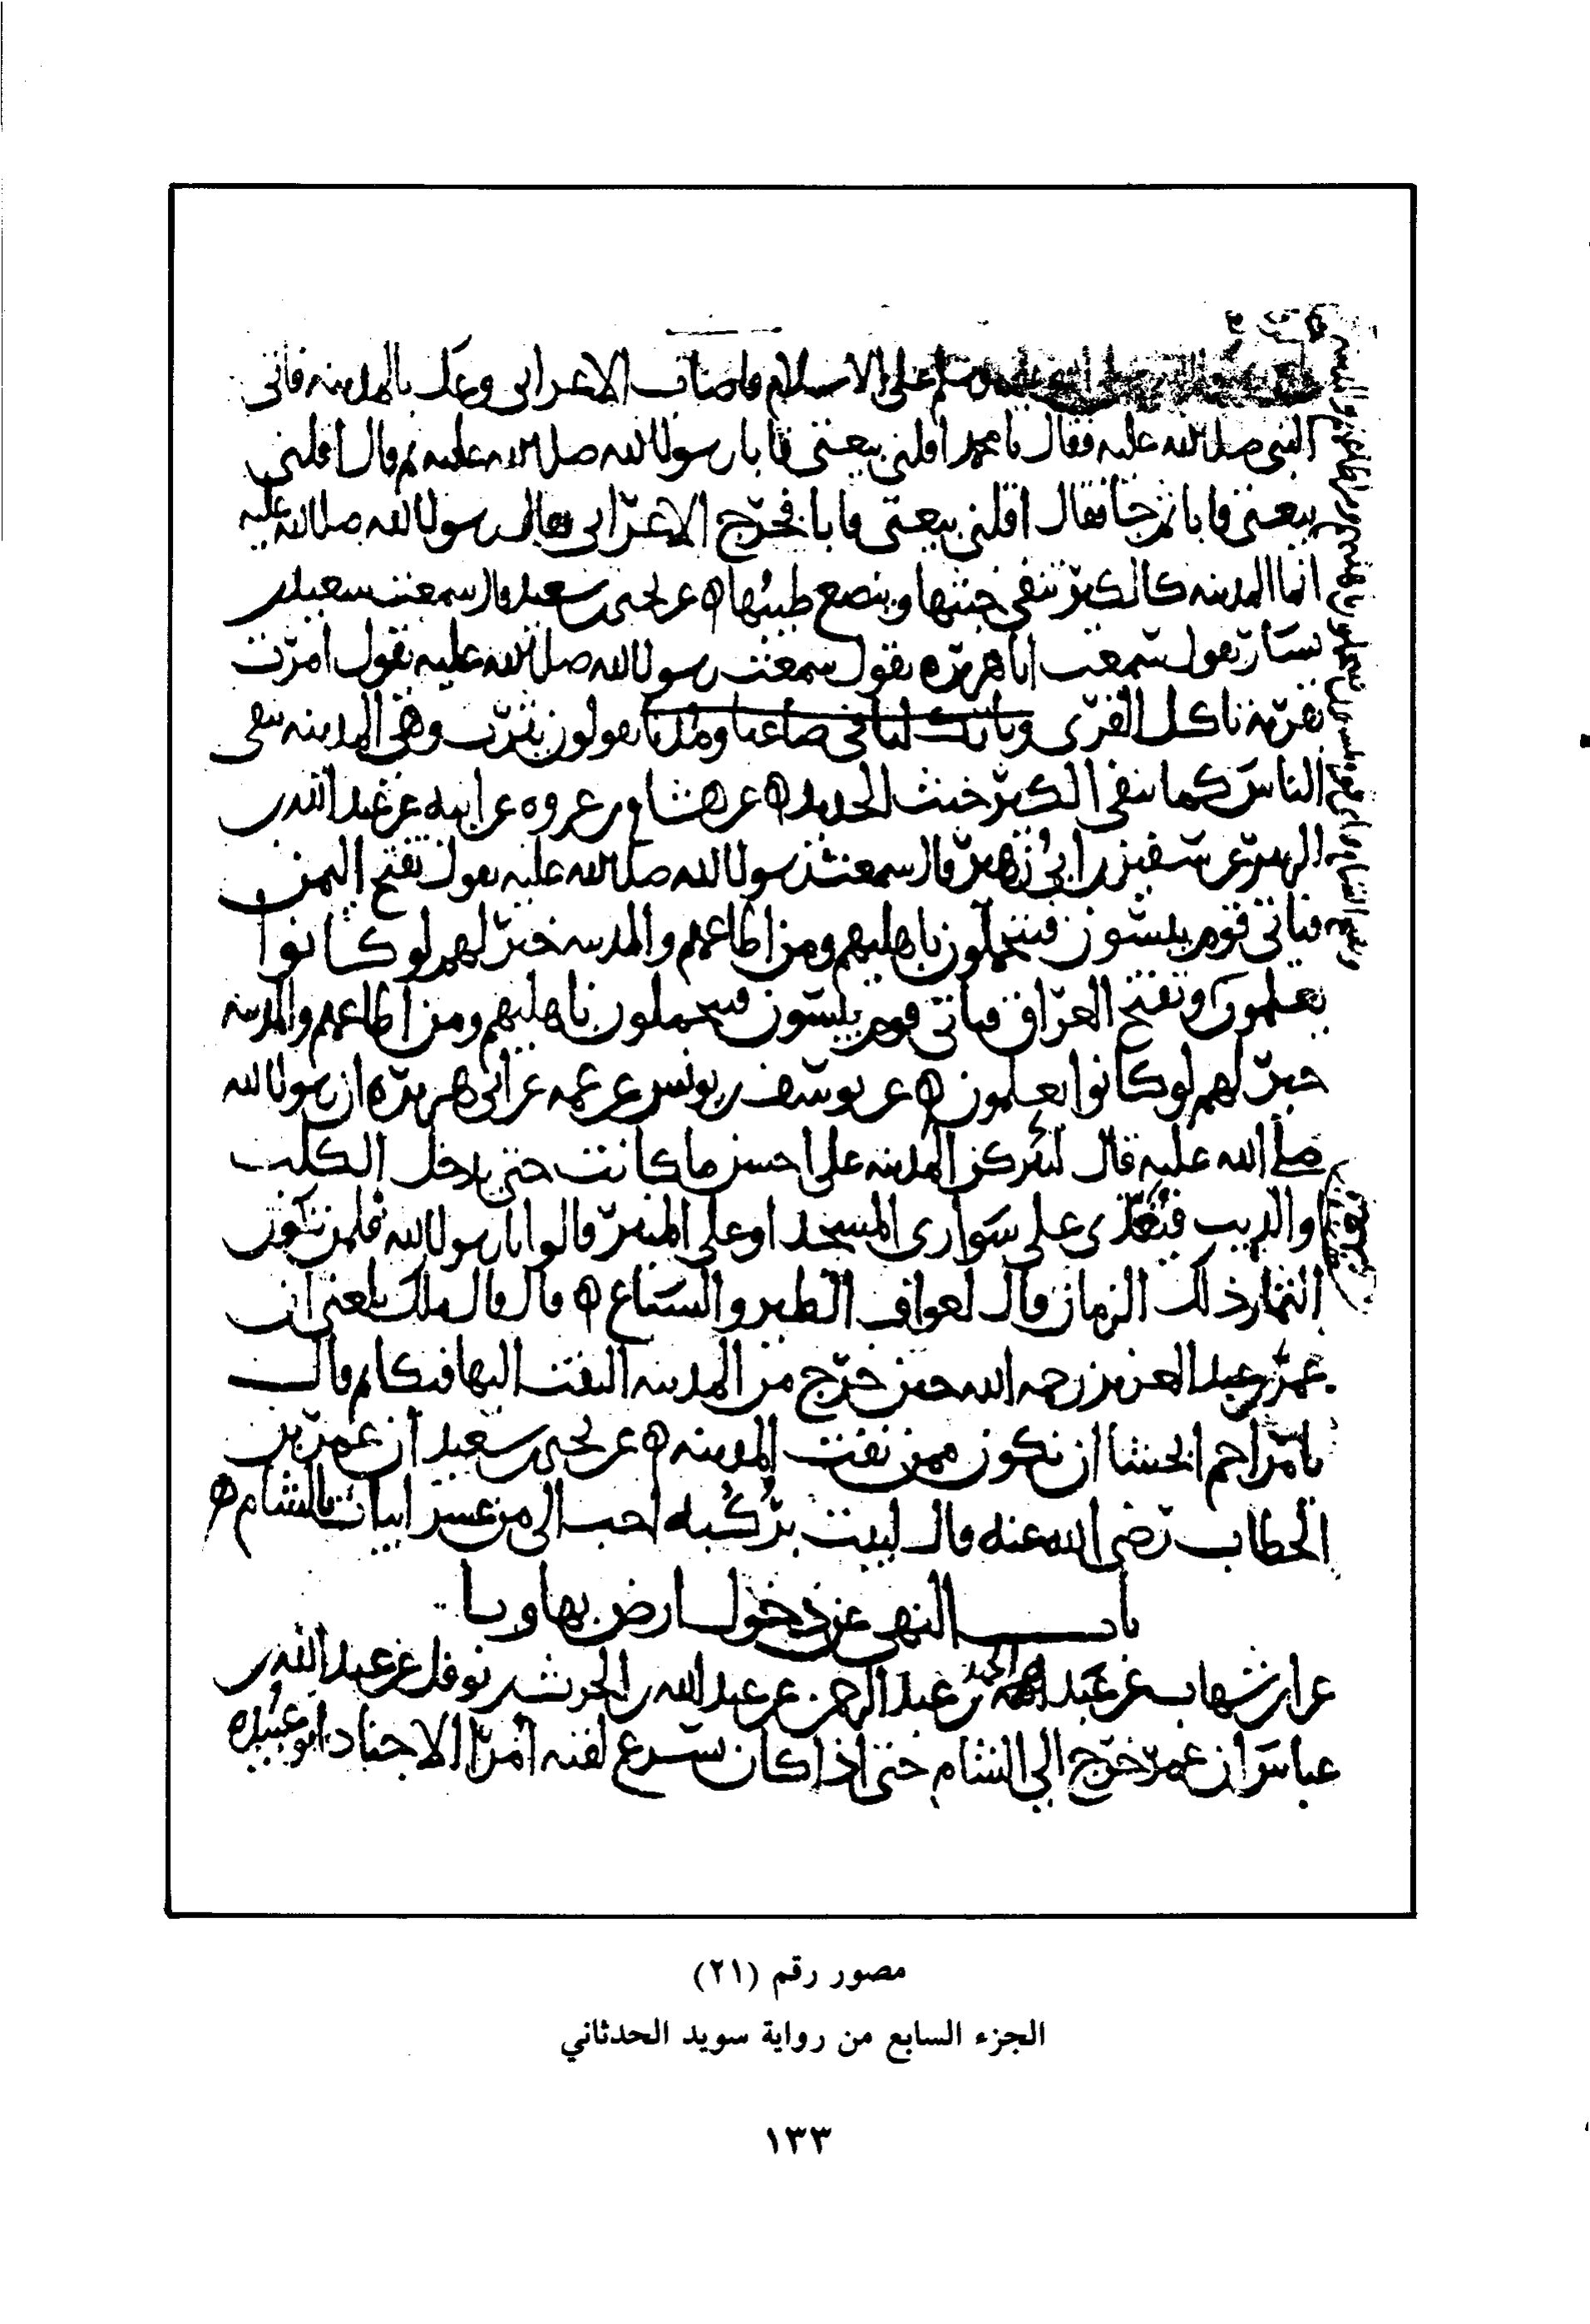 على الاسلام فاصاب الاعرابي وعك بالمدينه فاتى
النبي صلى الله عليه فقال يا محمد اقلني بيعتي فابا رسول الله صلى الله عليه ثم قال اقلني
بيعتي فابا ثم جا فقال اقلني بيعتي فابا فخرج الاعرابي فقال رسول الله صلى الله عليه
انما المدينه كالكير تنفي خبثها وينصع طيبها ه عن يحيى بن سعيد قال سمعت سعيد بن
يسار يقول سمعت ابا هريره يقول سمعت رسول الله صلى الله عليه يقول امرت
بقريه تاكل القرى وبارك لنا في صاعنا ومدنا يقولون يثرب وهي المدينه تنفي
الناس كما ينفي الكير خبث الحديد ه عن هشام بن عروه عن ابيه عن عبد الله بن
الزبير عن سفين بن ابي زهير قال سمعت رسول الله صلى الله عليه يقول تفتح اليمن
فياتي قوم يبسون فيتحملون باهليهم ومن اطاعهم والمدينه خير لهم لو كانوا
يعلمون وتفتح العراق فياتي قوم يبسون فيتحملون باهليهم ومن اطاعهم والمدينه
خير لهم لو كانوا يعلمون ه عن يوسف بن يونس عن عمه عن ابي هريره ان رسول الله
صلى الله عليه قال لتتركن المدينه على احسن ما كانت حتى يدخل الكلب
او الذيب فيغذي على سواري المسجد او على المنبر قالوا يا رسول الله فلمن تكون
الثمار ذلك الزمان قال لعواف الطير والسباع ه قال قال ملك بلغني ان
عمر بن عبد العزيز رحمه الله حين خرج من المدينه التفت اليها فبكا ثم قال
يا مزاحم اتخشا ان نكون ممن نفت المدينه ه عن يحيى بن سعيد ان عمر بن
الخطاب رضي الله عنه قال لبيت بركبه احب الي من عشر ابيات بالشام ه
باب النهي عن دخول ارض بها وبا
عن ابن شهاب عن عبد الحميد بن عبد الرحمن عن عبد الله بن الحرث بن نوفل عن عبد الله بن
عباس ان عمر خرج الى الشام حتى اذا كان بسرع لقيه امرا الاجناد ابو عبيده
مصور رقم (٢١)
الجزء السابع من رواية سويد الحدثاني
١٣٣